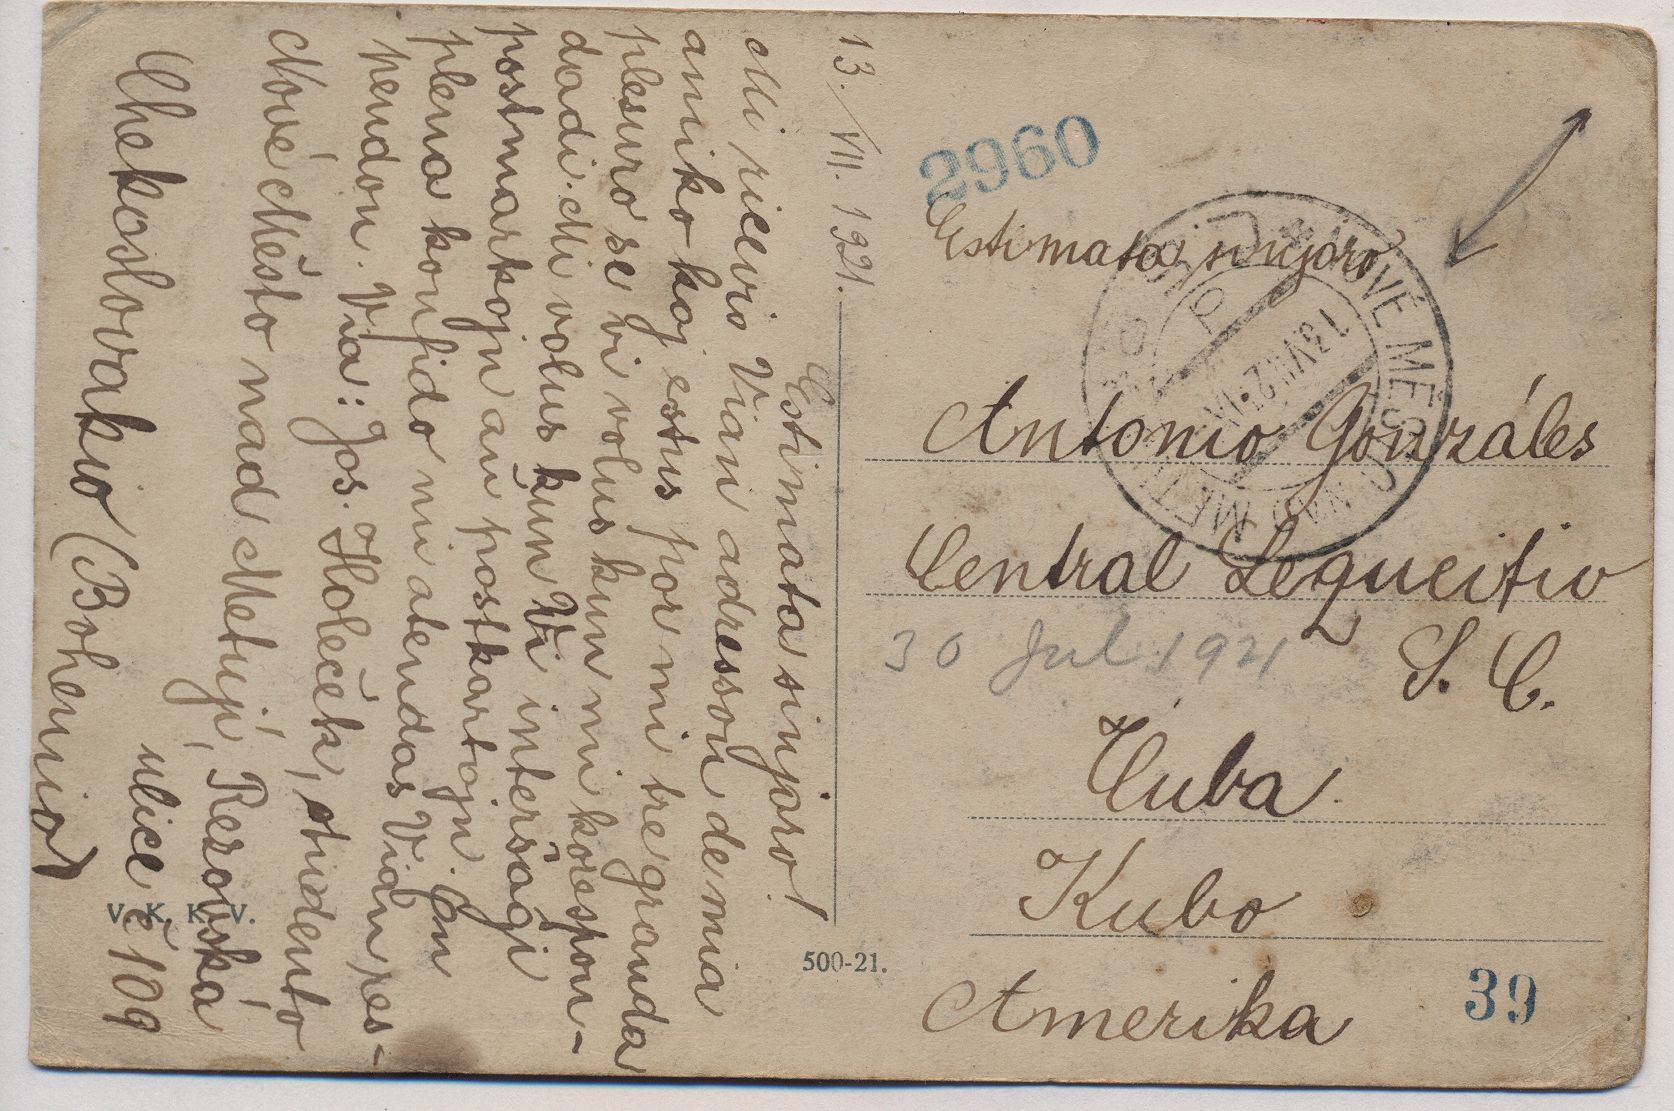 13. VII. 1921.
Estimata sinjoro!
Mi ricevis Vian adresson de mia
amiko kaj estus por mi tre granda
plesuro se vi volus kun mi korespon-
dadi. Mi volus kun Vi interŝaĝi
postmarkojn aŭ postkartojn. En
plena konfido mi atendas Vian res-
pondon. Via: Jos. Holeček, studento
Nové Město nad Metují, Resovská
ulice č 109
Chekoslovakio (Bohemio)
V. K. K. V.
500-21.
2960
Estimata sinjoro
NOVÉ MĚSTO NAD METUJÍ
13 VII 21
Antonio Gonzáles
Central Lequeitio
S. C.
30 Jul 1921
Cuba
Kubo
Amerika
39